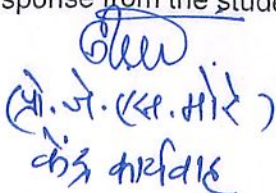 sponse from the stude
(प्रो. जे. एस. मोरे)
केंद्र कार्यवाह